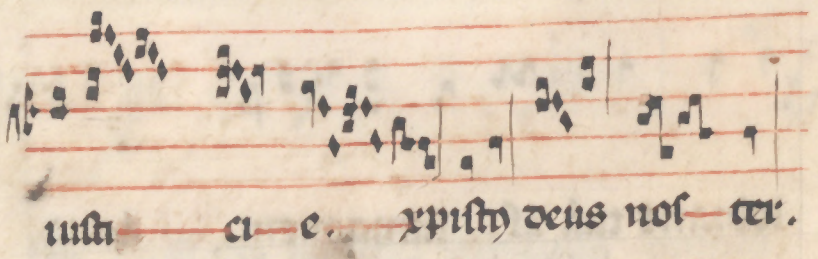 iusti ci e. xpistꝰ deus nos ter.